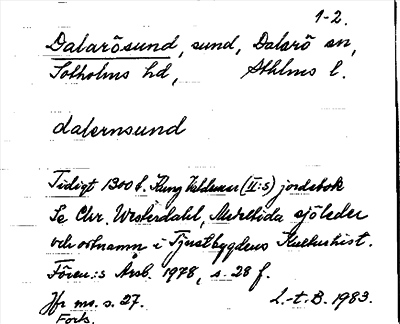 1-2.
Dalarösund, sund, Dalarö sn,
Sotholms hd, Sthlms l.
dalernsund
Tidigt 1300 t. Kung Valdemar (II:s) jordebok
Se Chr. Westerdahl, Medeltida sjöleder
och ortnamn i Tjustbygdens Kulturhist.
Fören:s Årsb. 1978, s. 28 f.
Jfr ms. s. 27. L-t. B. 1983.
Forts.